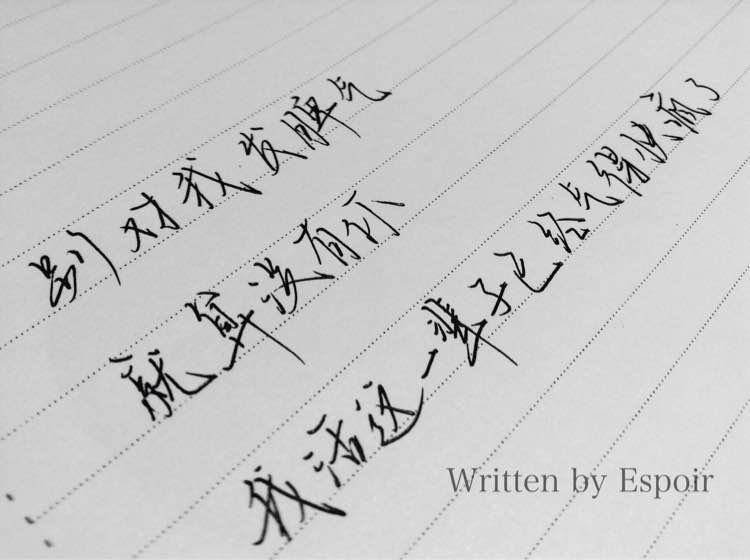 别对我发脾气
就算没有你
我活这一辈子已经气得快疯了
Written by Espoir